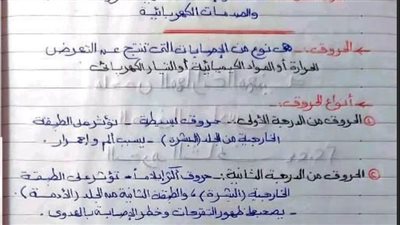 والصدمات الكهربائية
← الحروق:- هي نوع من الإصابات التي تنتج عند التعرض
للحرارة أو المواد الكيميائية أو التيار الكهربائي
← أنواع الحروق:-
① الحروق من الدرجة الأولى:- حروق بسيطة - تؤثر على الطبقة
الخارجية من الجلد (البشرة) - يسبب ألم واحمرار.
② الحروق من الدرجة الثانية:- حروف أكثر إيلاماً - تؤثر على الطبقة
الخارجية (البشرة) والطبقة الثانية من الجلد (الأدمة)
- يصحبها ظهور التقرحات وخطر الإصابة بالعدوى.